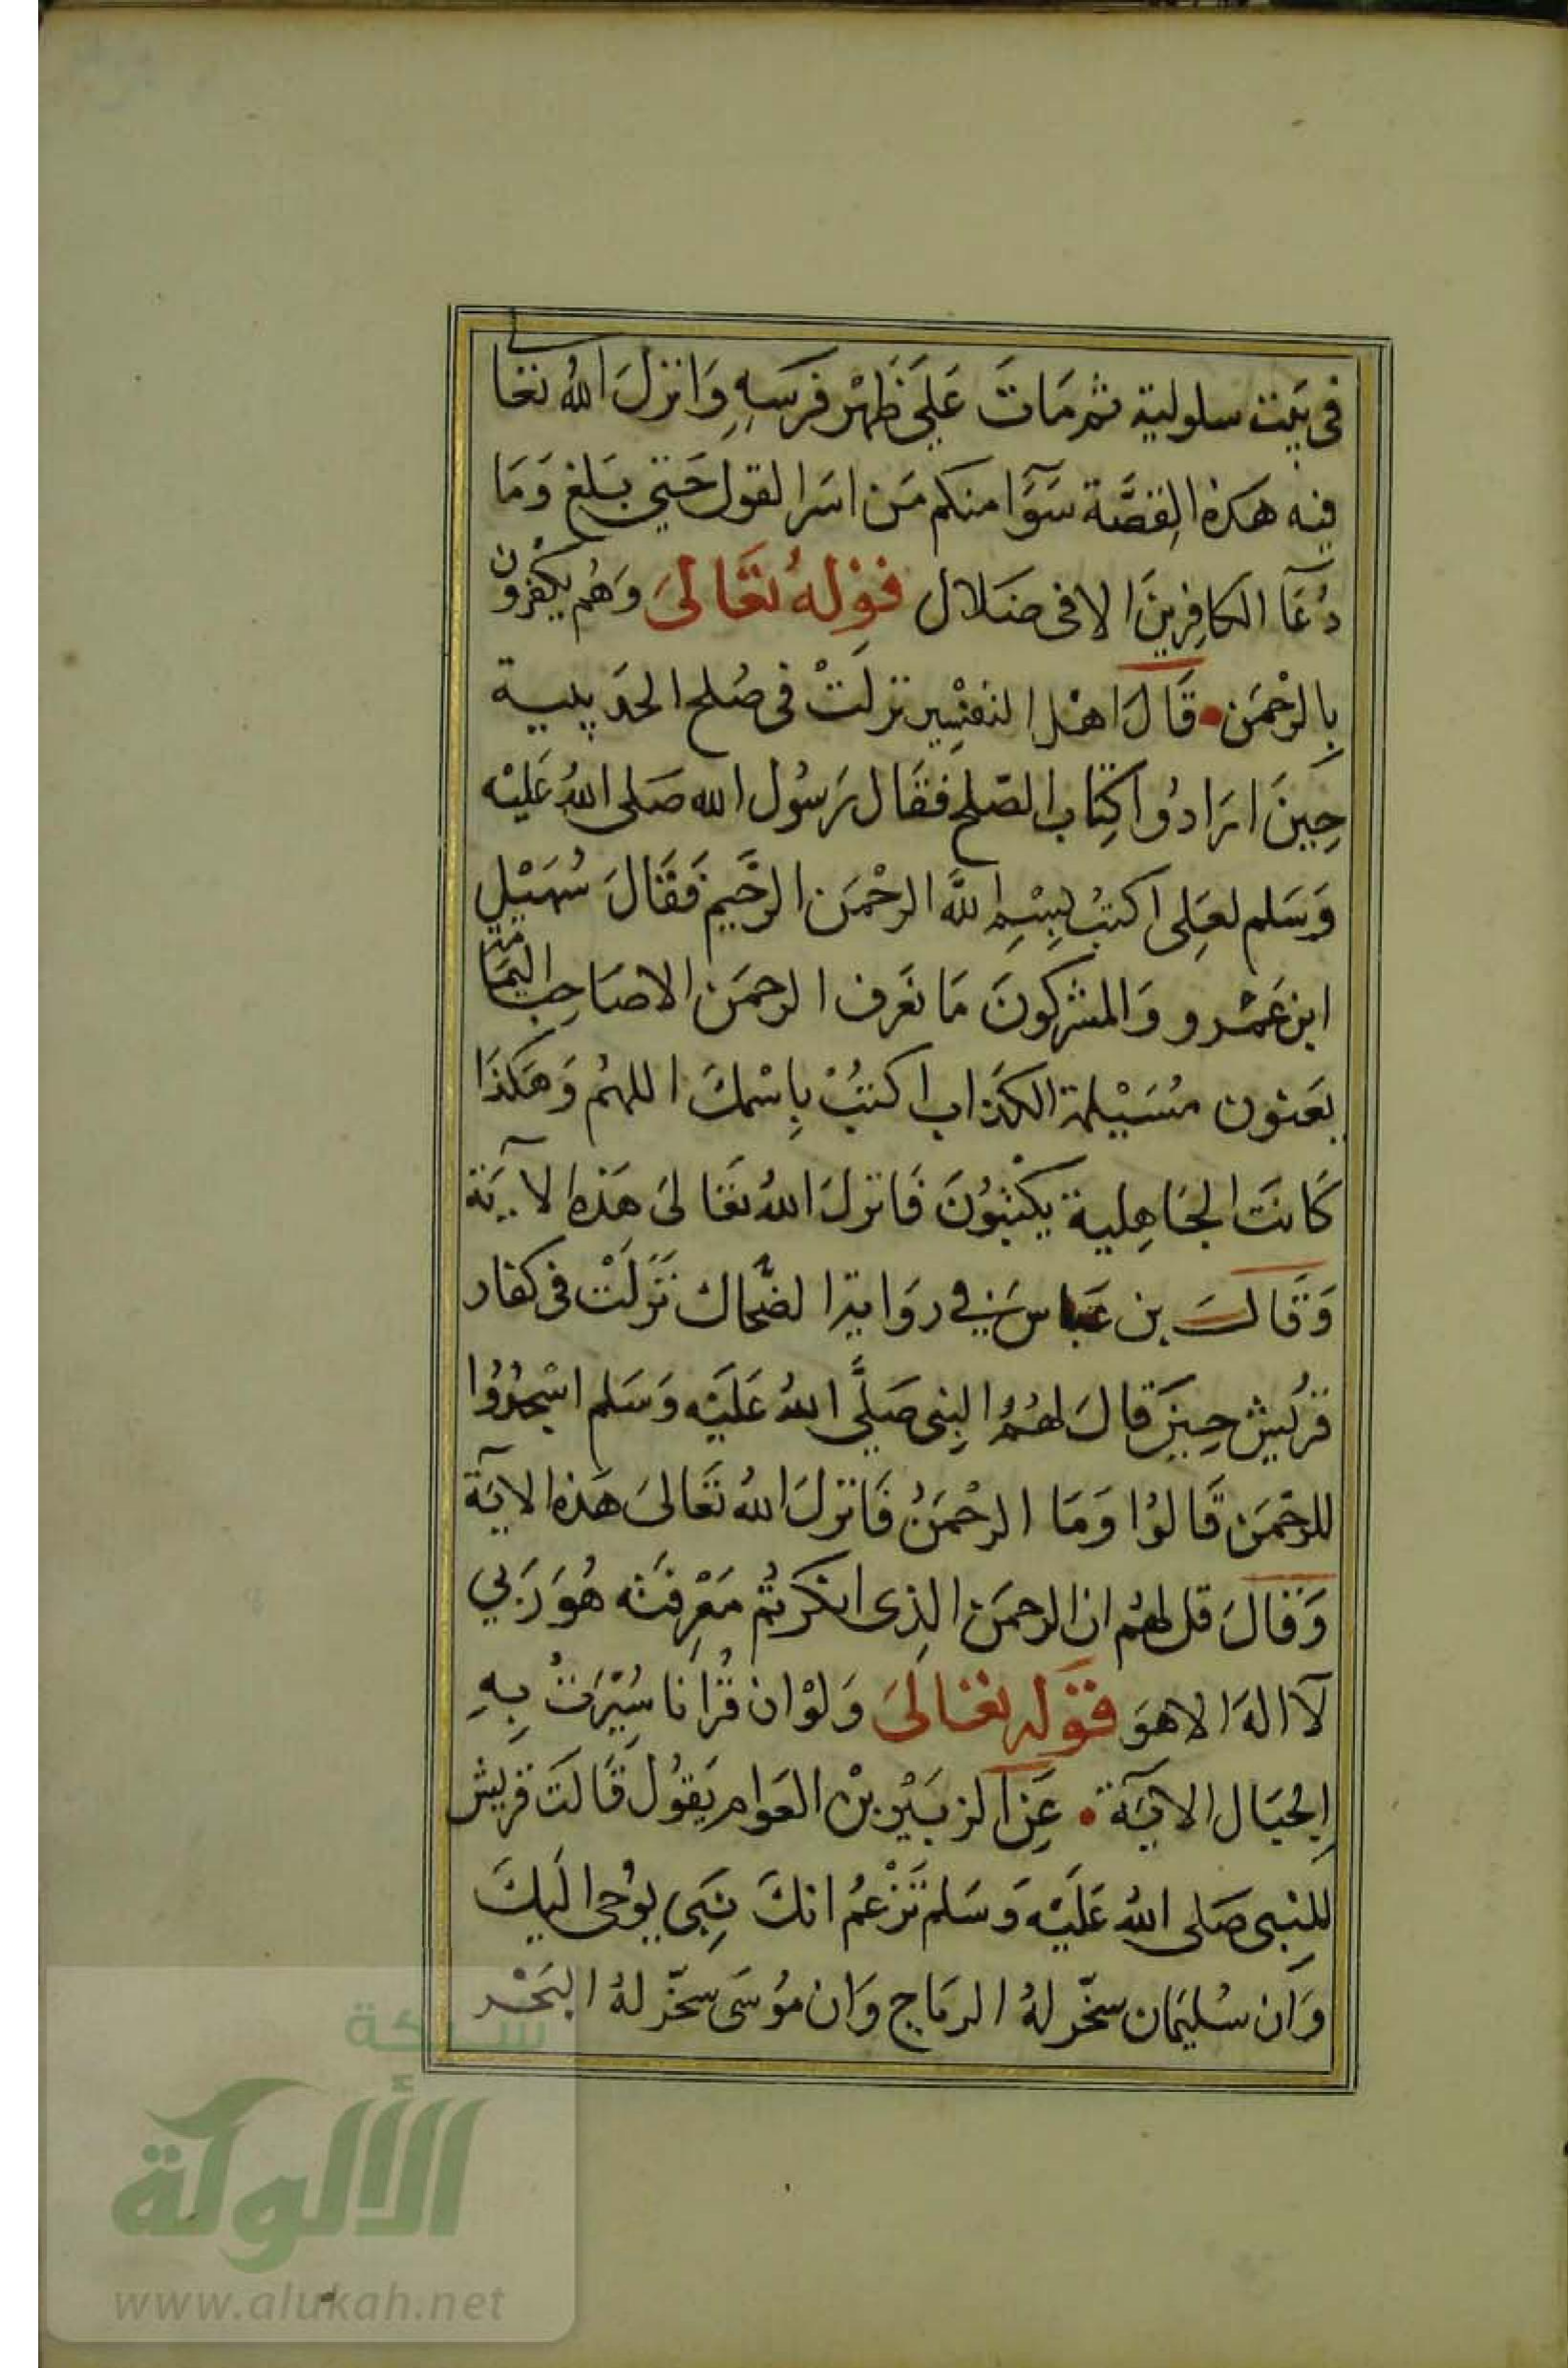 فى بَيْت سلولية ثم مَاتَ عَلَى ظَهْر فَرَسِهِ وَانزلَ اللهُ تعالى
فيه هَذه القِصَّة سَوَآ منكم مَن اسَرا لقول حَتى بَلغ وَمَا
دُعَآ الكافِرينَ الا فى ضَلال قَوْلهُ تعَالىَ وَهُم يكفرُون
بِالرحْمَن • قَالَ اهْل التفْسِير نزلَتْ فى صُلح الحدَيبية
حِينَ ارَادُوا كِتَاب الصّلح فقَال رَسُول الله صَلى اللهُ عَليْه
وَسَلم لعَلِى اكتبْ بِسْمِ اللَّه الرحْمَن الرحَّيم فَقَالَ سُهَيْل
ابن عَمْرو وَالمشركونَ مَا نعَرف الرحمَن الا صَاحِب اليمَامة
يعَنون مُسَيْلمة الكذاب اكتُبْ بِاسْمكَ اللهُم وَهَكذَا
كَانتَ الجَاهِلية يَكْتبُونَ فَانزلَ اللهُ تعَالى هَذه الآيَة
وَقَالَ بن عَبَاس فِي رِوَاية الضَّحاك نَزَلَتْ فى كفار
قرَيش حِينَ قالَ لهُمُ النِبى صَلَّى اللهُ عَلَيْه وَسَلم اسْجدُوُا
للرحْمَن قَالوُا وَمَا الرحْمَنُ فَانزلَ اللهُ تَعَالىَ هَذه الآيَة
وَقالَ قل لهُم ان الرحمَن الذِى انكَرتُم مَعْرِفتَه هُوَ رَبي
لآ الهَ الا هوَ قوَله تعَالىَ وَلوْ ان قُرآنا سُيّرَتْ بِهِ
الجبَال الآيَة • عَن الزبَيْر بْن العَوام يَقوُل قَالَتَ قريش
للنِبى صَلى اللهُ عَلَيْه وَسَلم تَزْعمُ انكَ نِبَى يوُحى اليكَ
وَان سُليمَان سخّر لهُ الرياح وَان موُسَى سخّر لهُ البَحْر
شبكة
الألوكة
www.alukah.net